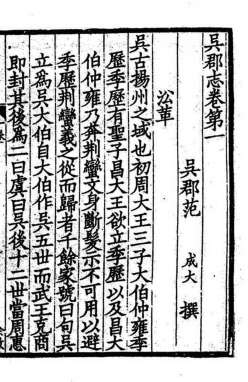 吳郡志卷第一
吳郡范 成大 撰
沿革
吳古揚州之域也初周大王三子大伯仲雍季
歷季歷有聖子昌大王欲立季歷以及昌大
伯仲雍乃奔荆蠻文身斷髮示不可用以避
季歷荆蠻義之從而歸者千餘家號曰句吳
立為吳大伯自大伯作吳五世而武王克商
即封其後為二一曰虞曰吳後十二世當周惠